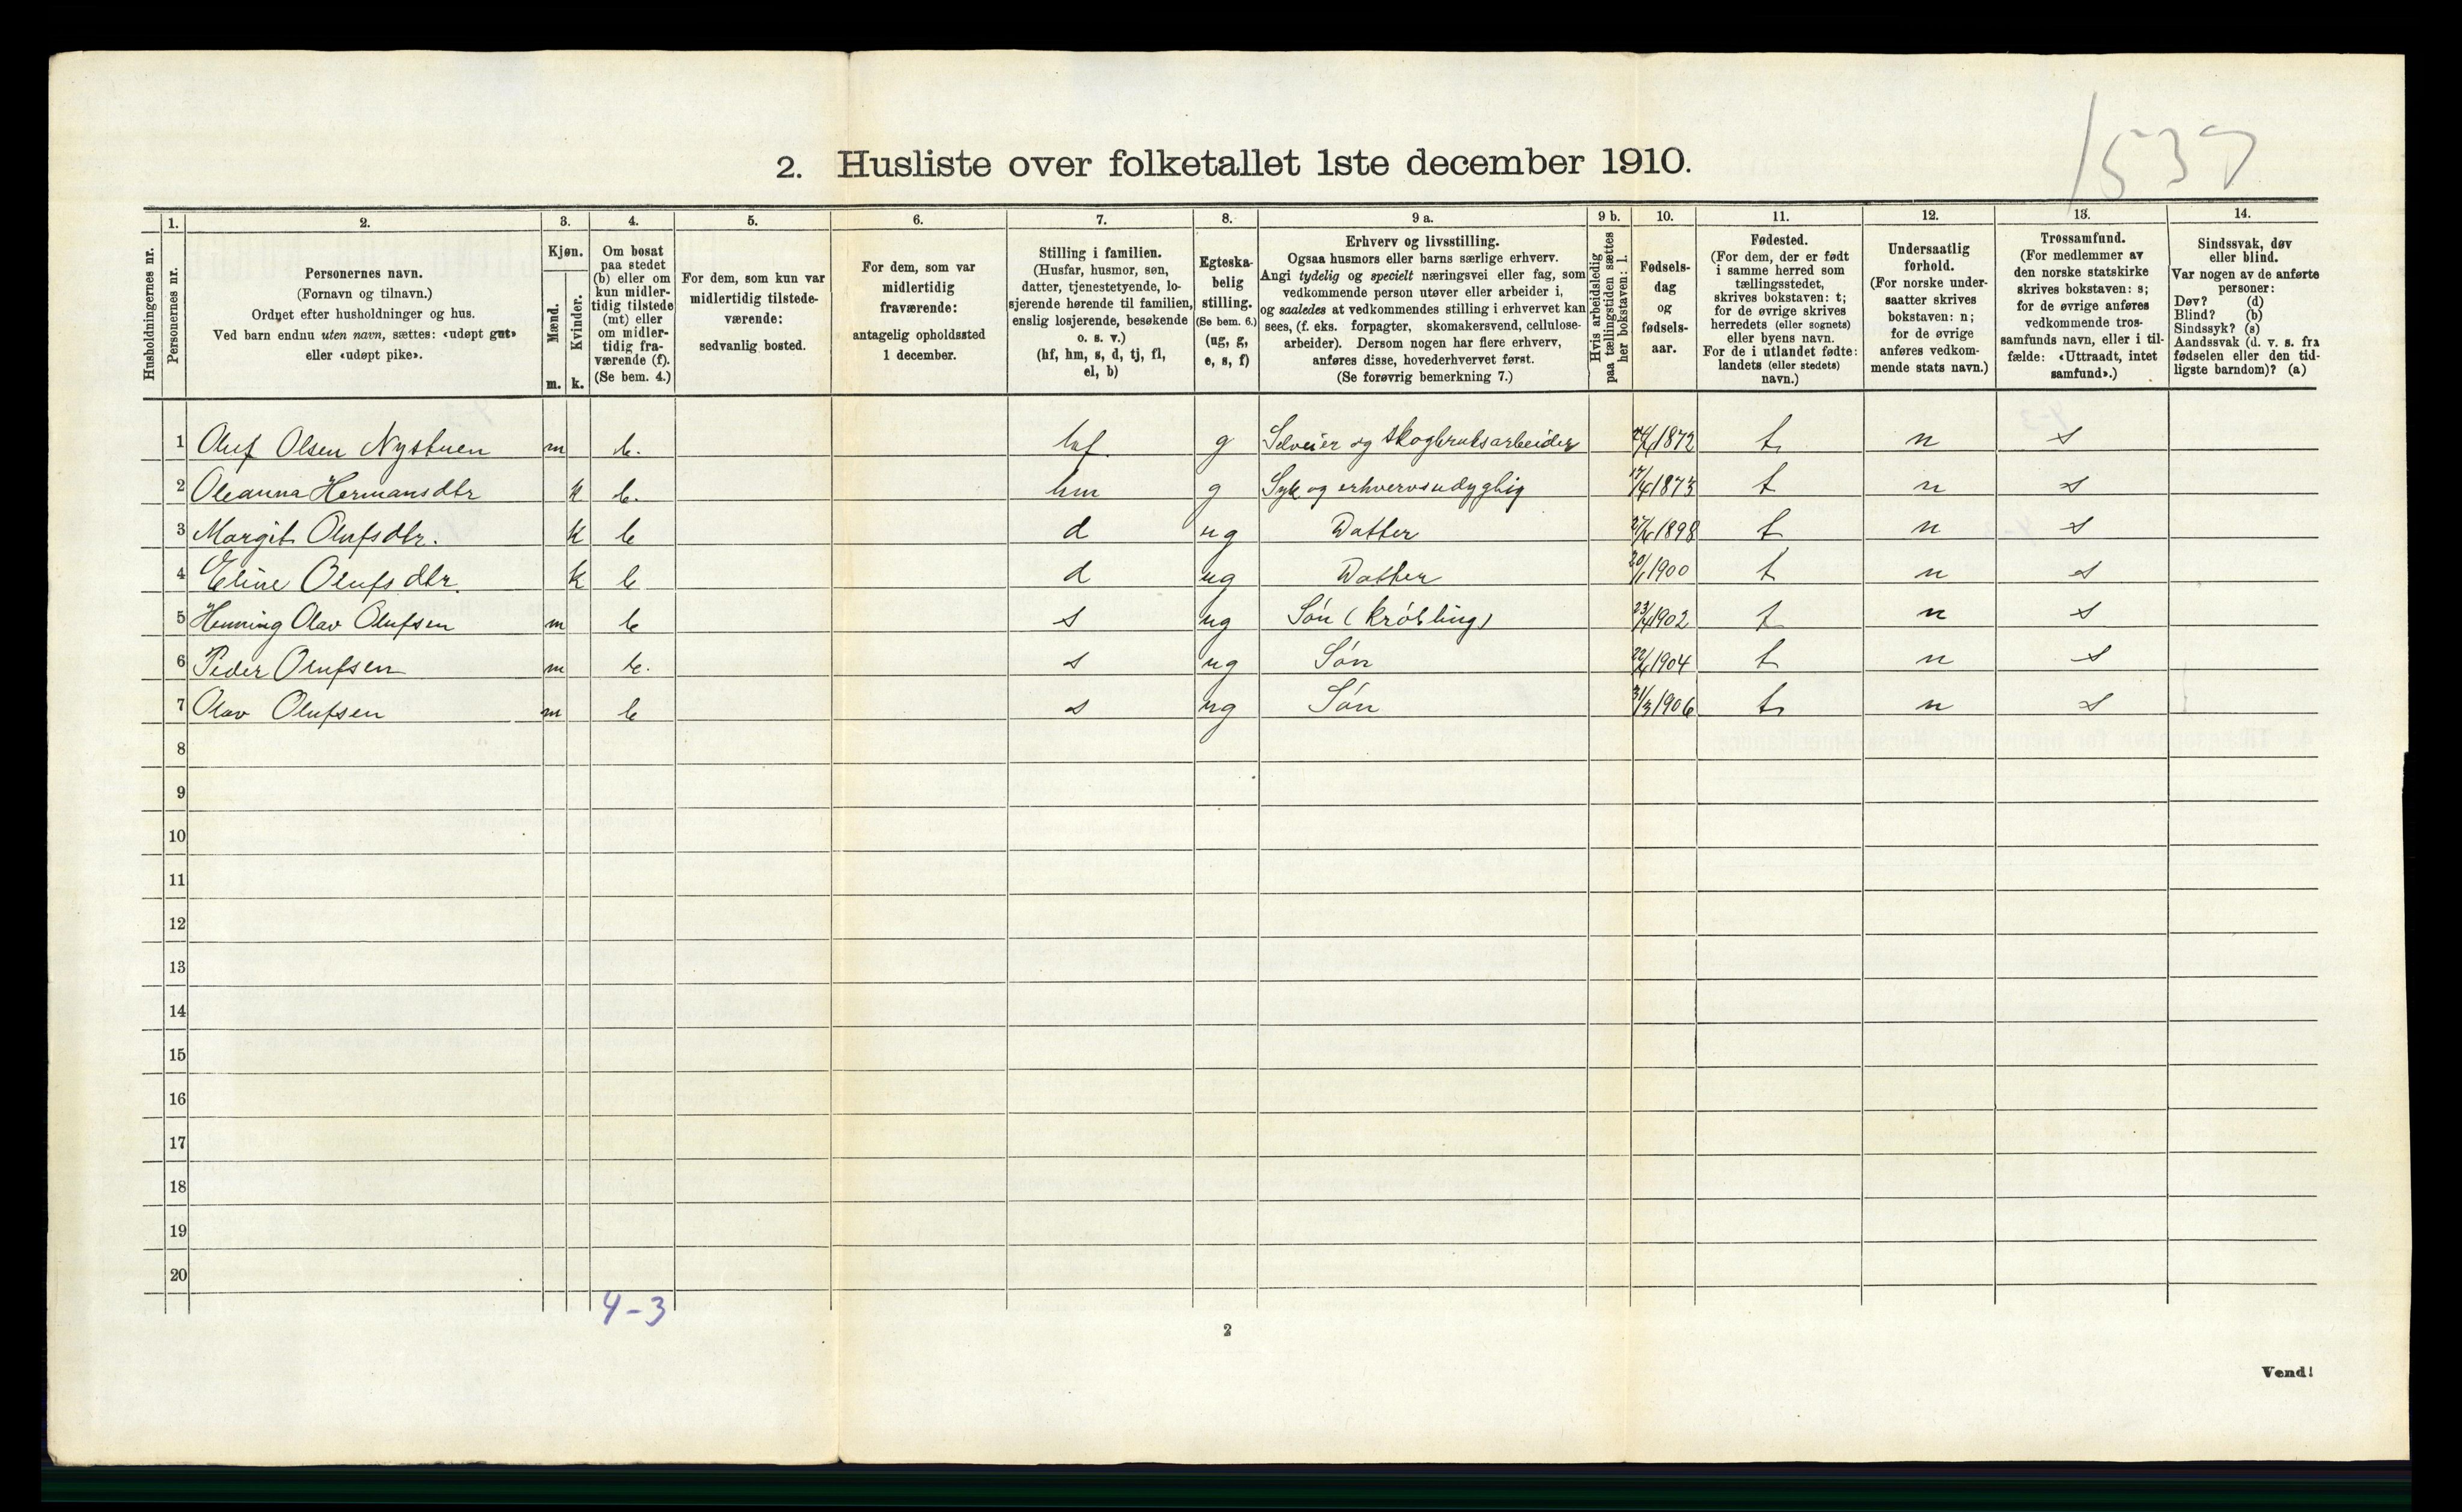 1537
2. Husliste over folketallet 1ste december 1910.
Husholdningernes nr.
1. Personernes nr.
2. Personernes navn. (Fornavn og tilnavn.) Ordnet efter husholdninger og hus. Ved barn endnu uten navn, sættes: «udøpt gut» eller «udøpt pike».
3. Kjøn. Mænd. m. Kvinder. k.
4. Om bosat paa stedet (b) eller om kun midlertidig tilstede (mt) eller om midlertidig fraværende (f). (Se bem. 4.)
5. For dem, som kun var midlertidig tilstedeværende: sedvanlig bosted.
6. For dem, som var midlertidig fraværende: antagelig opholdssted 1 december.
7. Stilling i familien. (Husfar, husmor, søn, datter, tjenestetyende, losjerende hørende til familien, enslig losjerende, besøkende o. s. v.) (hf, hm, s, d, tj, fl, el, b)
8. Egteskabelig stilling. (Se bem. 6.) (ug, g, e, s, f)
9 a. Erhverv og livsstilling. Ogsaa husmors eller barns særlige erhverv. Angi tydelig og specielt næringsvei eller fag, som vedkommende person utøver eller arbeider i, og saaledes at vedkommendes stilling i erhvervet kan sees, (f. eks. forpagter, skomakersvend, cellulosearbeider). Dersom nogen har flere erhverv, anføres disse, hovederhvervet først. (Se forøvrig bemerkning 7.)
9 b. Hvis arbeidsledig paa tællingstiden sættes her bokstaven: l.
10. Fødselsdag og fødselsaar.
11. Fødested. (For dem, der er født i samme herred som tællingsstedet, skrives bokstaven: t; for de øvrige skrives herredets (eller sognets) eller byens navn. For de i utlandet fødte: landets (eller stedets) navn.)
12. Undersaatlig forhold. (For norske undersaatter skrives bokstaven: n; for de øvrige anføres vedkommende stats navn.)
13. Trossamfund. (For medlemmer av den norske statskirke skrives bokstaven: s; for de øvrige anføres vedkommende trossamfunds navn, eller i tilfælde: «Uttraadt, intet samfund».)
14. Sindssvak, døv eller blind. Var nogen av de anførte personer: Døv? (d) Blind? (b) Sindssyk? (s) Aandssvak (d. v. s. fra fødselen eller den tidligste barndom)? (a)
1 Oluf Olsen Nystuen m b. hf. g Selveier og skogbruksarbeider 1872 t n s
2 Oleanna Hermansdtr k b. hm g Syk og erhvervsudyglig 17/4 1873 t n s
3 Margit Olufsdtr. k b d ug Datter 1898 t n s
4 Eline Olufsdtr. k b d ug Datter 1900 t n s
5 Henning Olav Olufsen m b s ug Søn (krøbling) 1902 t n s
6 Peder Olufsen m b. s ug Søn 1904 t n s
7 Olav Olufsen m b s ug Søn 31/3 1906 t n s
8
9
10
11
12
13
14
15
16
17
18
19
20
4-3
2
Vend!